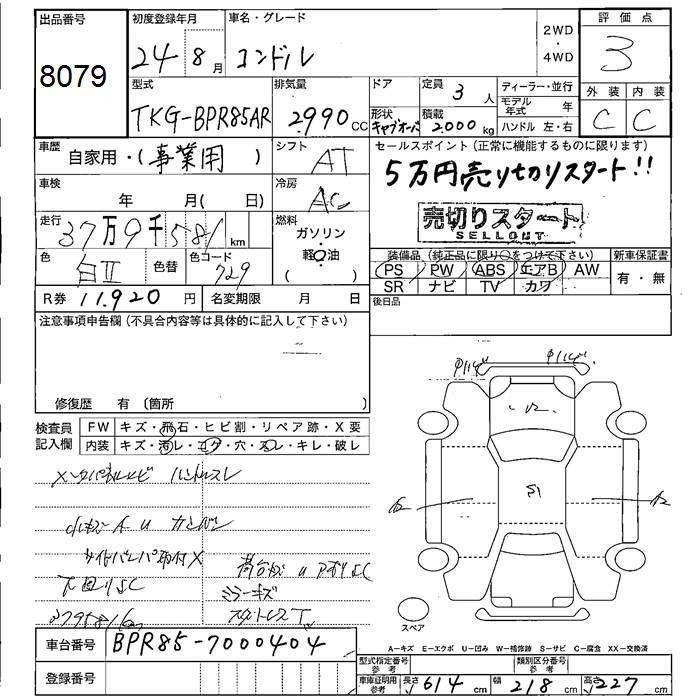 出品番号 初度登録年月 車名・グレード 2WD・4WD 評価点
8079 24年8月 コンドル 3
型式 排気量 ドア 定員 3人 ディーラー・並行 外装 内装
TKG-BPR85AR 2990CC 形状 キャブオーバ 積載 2000kg モデル年式 年 ハンドル 左・右 C C
車歴 自家用・(事業用) シフト AT セールスポイント(正常に機能するものに限ります)
5万円売り切りスタート!!
車検 年 月( 日) 冷房 AC
売切りスタート
SELLOUT
走行 37万9千581km 燃料 ガソリン・軽油
装備品(純正品に限り○をつけて下さい) 新車保証書
色 白II 色替 色コード 729 PS PW ABS エアB AW 有・無
SR ナビ TV カワ
R券 11,920円 名変期限 月 日 後日品
注意事項申告欄(不具合内容等は具体的に記入して下さい)
修復歴 有(箇所 )
検査員記入欄 FW キズ・飛石・ヒビ割・リペア跡・X要
内装 キズ・汚レ・コゲ・穴・スレ・キレ・破レ
ハンドルスレ
サイドバンパ取付X
下回りSC
ミラーキズ
379581km
S1
スペア
車台番号 BPR85-7000404
登録番号
A-キズ E-エクボ U-凹み W-補修跡 S-サビ C-腐食 XX-交換済
型式指定番号 参考 類別区分番号 参考
車庫証明用 参考 長さ 614cm 幅 218cm 高さ 227cm